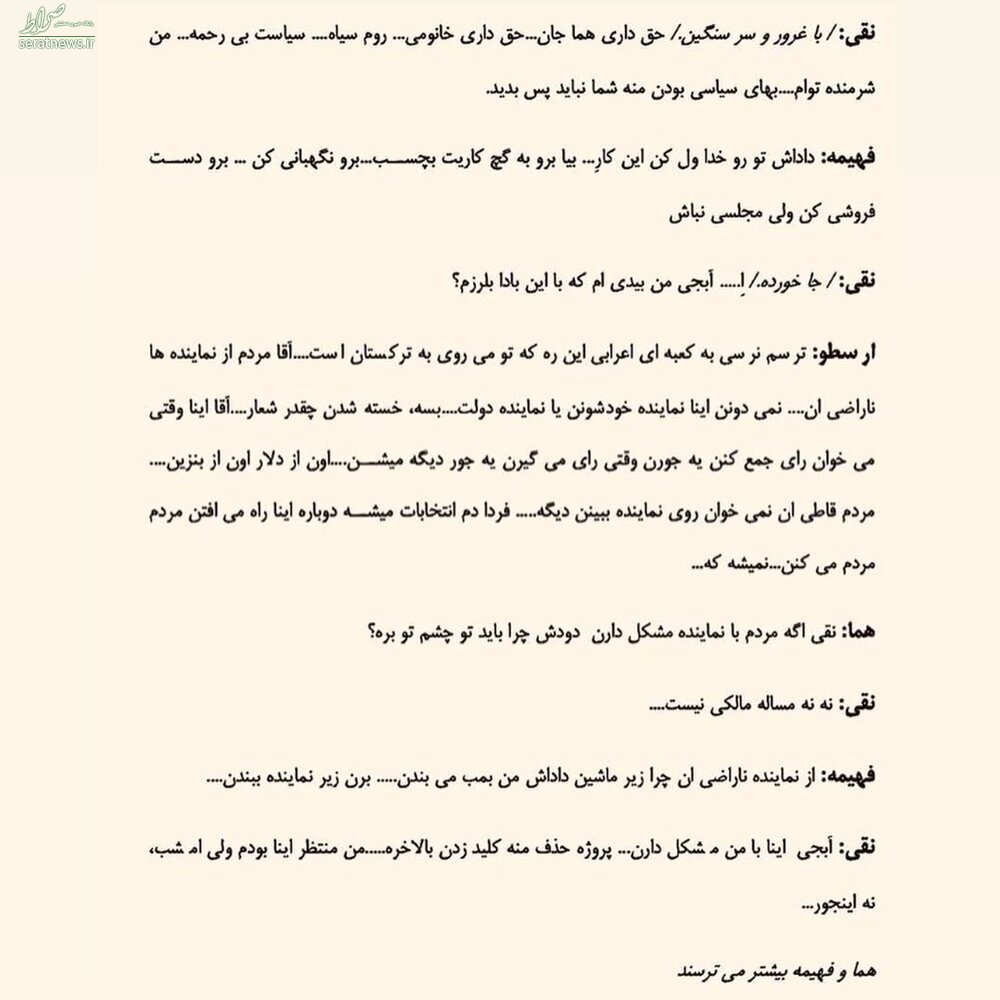 صراط
پایگاه خبری تحلیلی
seratnews.ir
نقی: / با غرور و سر سنگین./ حق داری هما جان...حق داری خانومی... روم سیاه.... سیاست بی رحمه... من
شرمنده توام....بهای سیاسی بودن منه شما نباید پس بدید.
فهیمه: داداش تو رو خدا ول کن این کارِ... بیا برو به گچ کاریت بچسب...برو نگهبانی کن ... برو دست
فروشی کن ولی مجلسی نباش
نقی: / جا خورده./ اِ..... آبجی من بیدی ام که با این بادا بلرزم؟
ارسطو: ترسم نرسی به کعبه ای اعرابی این ره که تو می روی به ترکستان است....آقا مردم از نماینده ها
ناراضی ان.... نمی دونن اینا نماینده خودشونن یا نماینده دولت....بسه، خسته شدن چقدر شعار....آقا اینا وقتی
می خوان رای جمع کنن یه جورن وقتی رای می گیرن یه جور دیگه میشن....اون از دلار اون از بنزین....
مردم قاطی ان نمی خوان روی نماینده ببینن دیگه..... فردا دم انتخابات میشه دوباره اینا راه می افتن مردم
مردم می کنن...نمیشه که...
هما: نقی اگه مردم با نماینده مشکل دارن دودش چرا باید تو چشم تو بره؟
نقی: نه نه مساله مالکی نیست....
فهیمه: از نماینده ناراضی ان چرا زیر ماشین داداش من بمب می بندن..... برن زیر نماینده ببندن....
نقی: آبجی اینا با من مشکل دارن... پروژه حذف منه کلید زدن بالاخره.....من منتظر اینا بودم ولی امشب،
نه اینجور...
هما و فهیمه بیشتر می ترسند